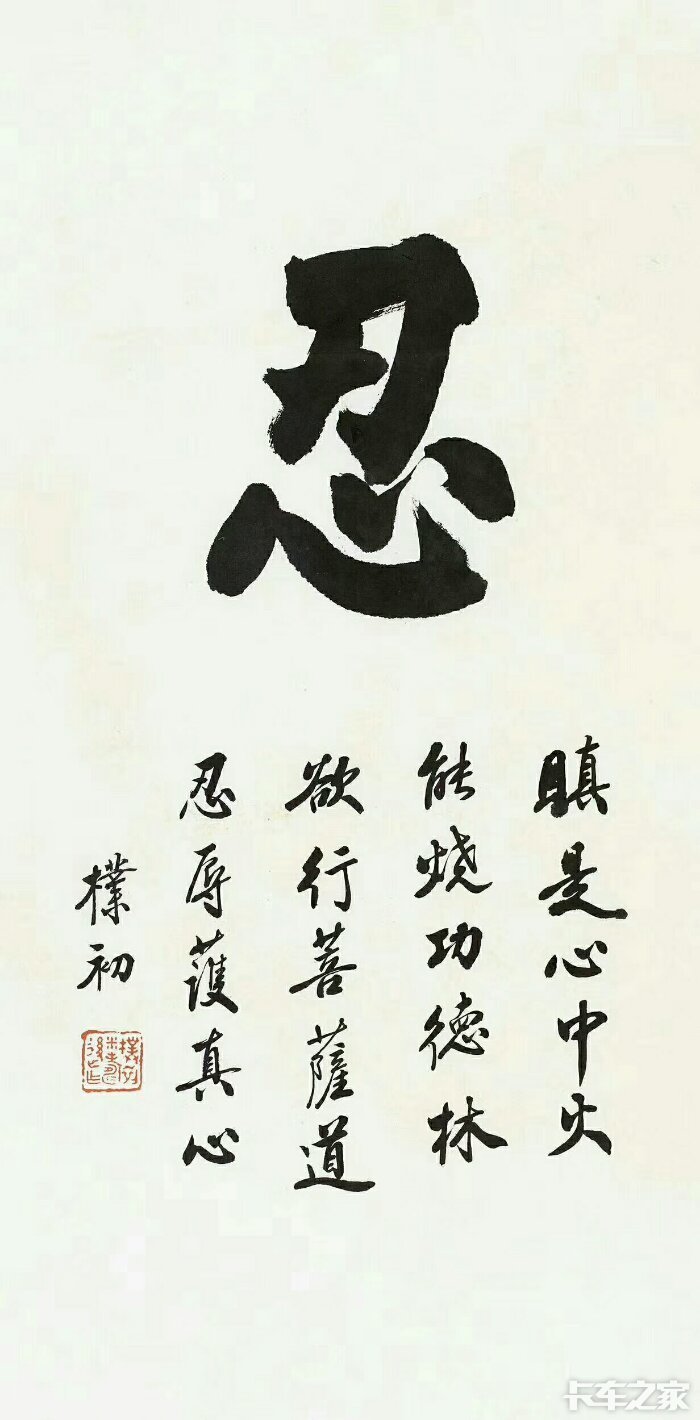 忍
瞋是心中火
能烧功德林
欲行菩薩道
忍辱護真心
樸初
卡车之家